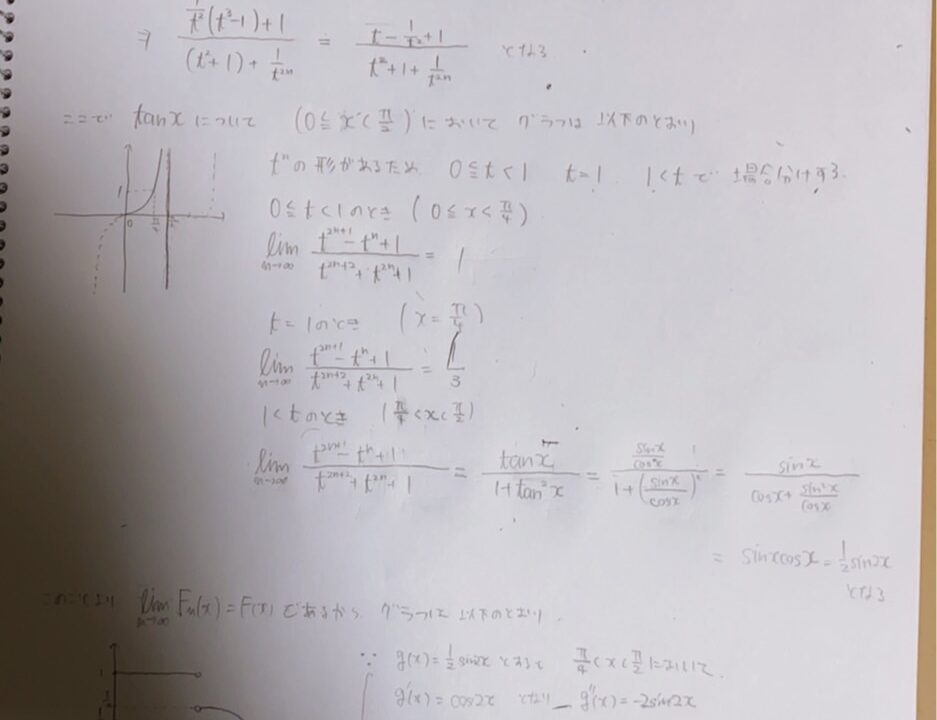 ⇒ (1/t²(t³-1)+1)/((t²+1)+1/t²ⁿ) = (t-1/t²+1)/(t²+1+1/t²ⁿ) となる
ここで tanx について (0≦x<π/2) において グラフは 以下のとおり
tⁿの形があるため 0≦t<1 t=1 1<t で 場合分けする.
1
0 π/4 π/2
0≦t<1のとき (0≦x<π/4)
lim n→∞ (t²ⁿ⁺¹-tⁿ+1)/(t²ⁿ⁺²+t²ⁿ+1) = 1
t=1のとき (x=π/4)
lim n→∞ (t²ⁿ⁺¹-tⁿ+1)/(t²ⁿ⁺²+t²ⁿ+1) = 1/3
1<tのとき (π/4<x<π/2)
lim n→∞ (t²ⁿ⁺¹-tⁿ+1)/(t²ⁿ⁺²+t²ⁿ+1) = tanx/(1+tan²x) = (sinx/cosx)/(1+(sinx/cosx)²) = sinx/(cosx+sin²x/cosx)
= sinxcosx = 1/2 sin2x
となる
このことより lim n→∞ Fn(x)=F(x) であるから グラフは 以下のとおり.
∵ g(x)=1/2 sin2x とすると π/4<x<π/2 において,
g'(x)=cos2x となり g''(x)=-2sin2x
1
1/2